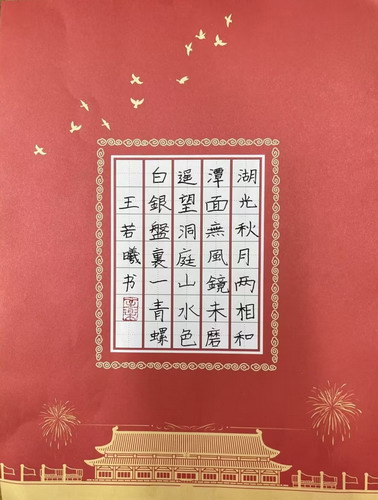 湖光秋月两相和
潭面無風鏡未磨
遥望洞庭山水色
白銀盤裏一青螺
王若曦书